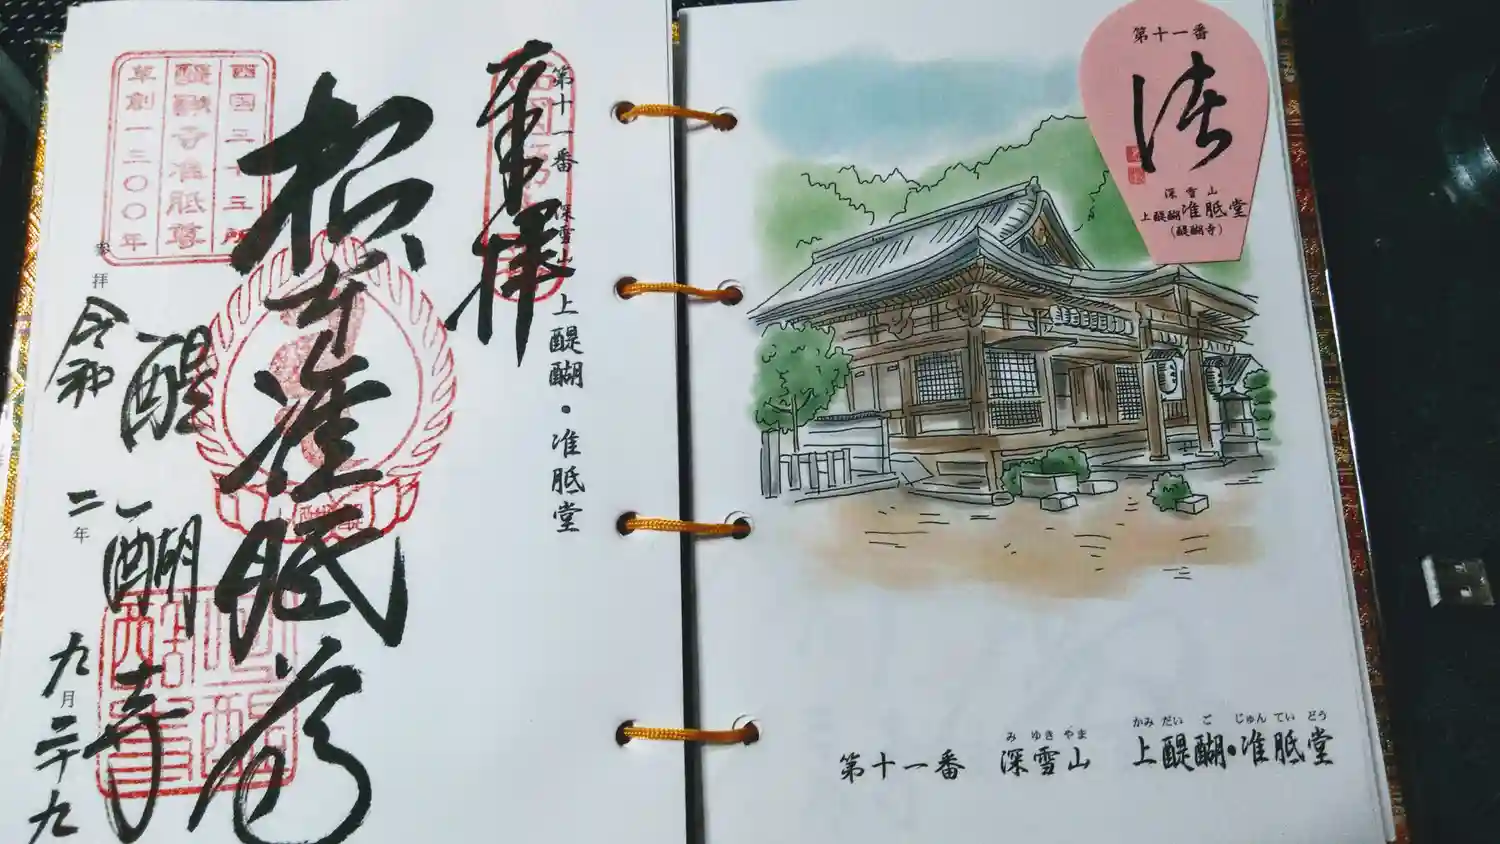 奉拝
第十一番 深雪山 上醍醐・准胝堂
根本准胝尊
西国三十三所
醍醐寺准胝尊
草創一三〇〇年
醍醐寺
参拝
令和二年九月二十九
第十一番
深雪山
上醍醐准胝堂
(醍醐寺)
み ゆき やま かみ だい ご じゅん てい どう
第十一番 深雪山 上醍醐・准胝堂